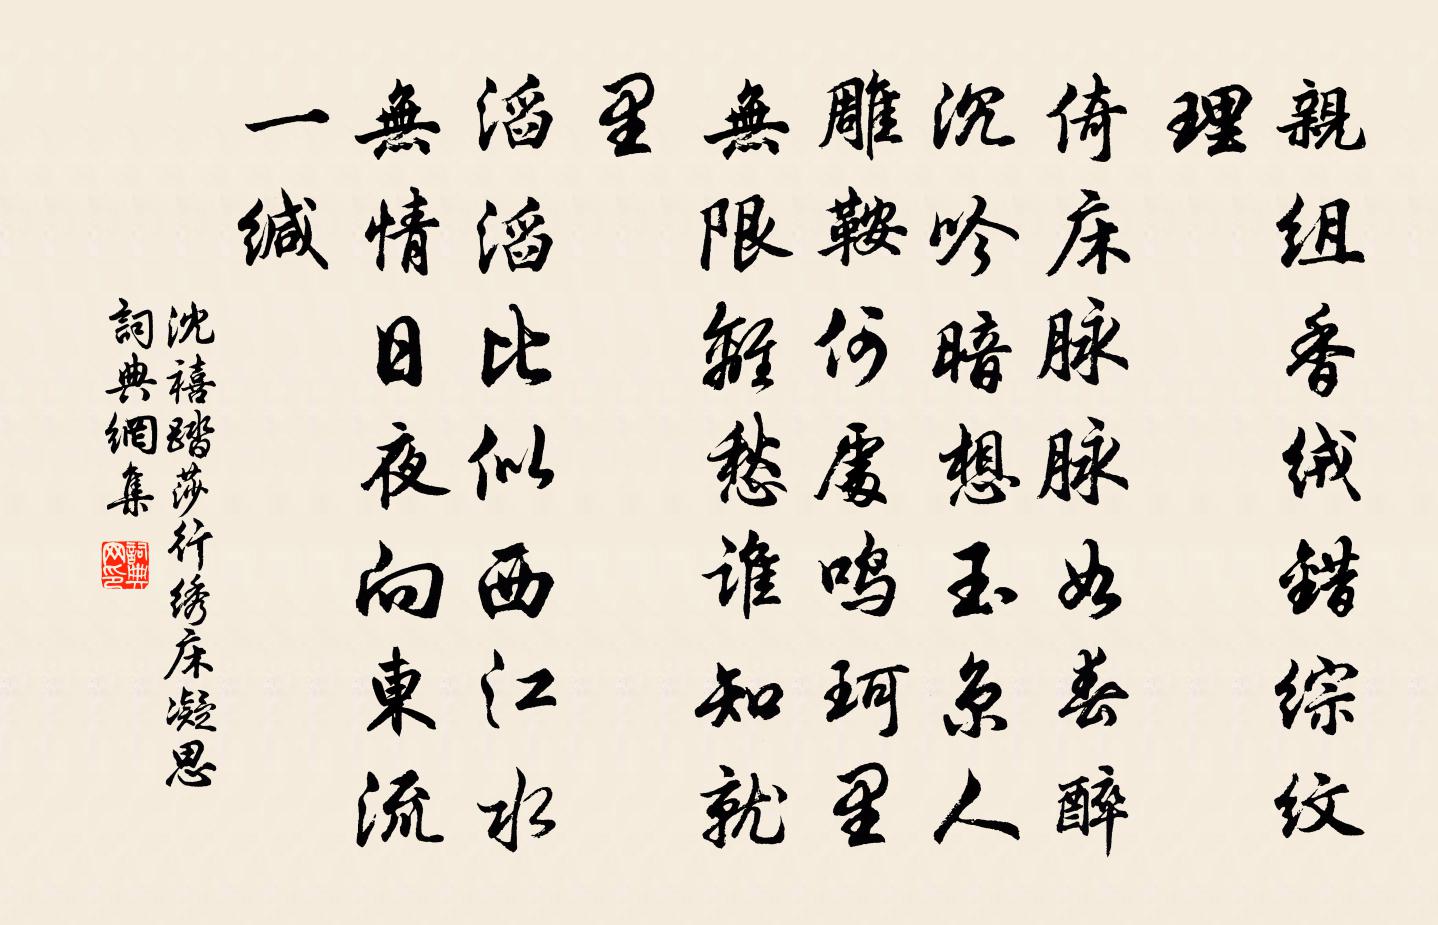 親組香绒錯綜紋
理
倚床脉脉如春醉
沉吟暗想玉京人
雕鞍何處鳴珂里
無限離愁誰知就
里
滔滔比似西江水
無情日夜向東流
一缄
沈禧踏莎行绣床凝思
詞典網集
詞典网印